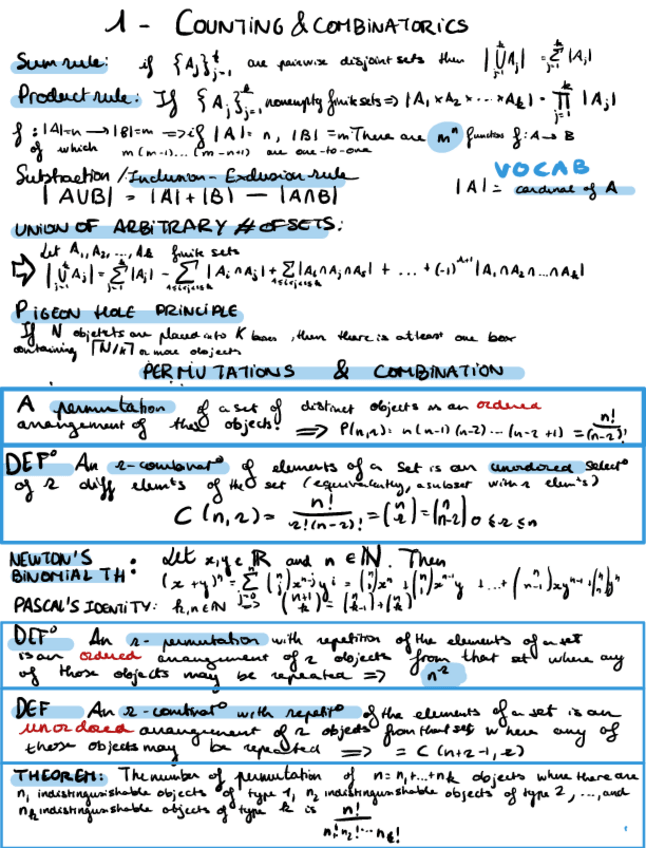 1 - COUNTING & COMBINATORICS
Sum rule: if {A_j}_{j=1}^k are pairwise disjoint sets then |⋃_{j=1}^k A_j| = Σ_{j=1}^k |A_j|
Product rule: If {A_j}_{j=1}^k nonempty finite sets => |A_1 × A_2 × ... × A_k| = ∏_{j=1}^k |A_j|
f : |A|=n → |B|=m => if |A| = n, |B| = m There are m^n functos f: A → B
of which m(m-1)...(m-n+1) are one-to-one
Substraction / Inclusion - Exclusion rule
VOCAB
|A∪B| = |A| + |B| − |A∩B|
|A| = cardinal of A
UNION OF ARBITRARY # OF SETS:
Let A_1, A_2, ..., A_k finite sets
⇨ |⋃_{j=1}^k A_j| = Σ_{j=1}^k |A_j| − Σ_{1≤i<j≤k} |A_i ∩ A_j| + Σ |A_i ∩ A_j ∩ A_s| + ... + (-1)^{k+1} |A_1 ∩ A_2 ∩ ... ∩ A_k|
PIGEON HOLE PRINCIPLE
If N objects are placed into K boxes, then there is at least one box
containing ⌈N/k⌉ or more objects
PERMUTATIONS & COMBINATION
A permutation of a set of distinct objects is an ordered
arrangement of these objects. => P(n,r) = n(n-1)(n-2)...(n-r+1) = n!/(n-r)!
DEF° An r-combinat° of elements of a set is an unordored select°
of r diff elem'ts of the set (equivalently, a subset with r elem'ts)
C(n,r) = n!/(r!(n-r)!) = (n r) = (n n-r) 0 ≤ r ≤ n
NEWTON'S BINOMIAL TH : Let x,y ∈ ℝ and n ∈ ℕ. Then
(x+y)^n = Σ_{j=0}^n (n j) x^{n-j} y^j = (n 0) x^n + (n 1) x^{n-1} y + ... + (n n-1) x y^{n-1} + (n n) y^n
PASCAL'S IDENTITY: k,n ∈ ℕ => (n+1 k) = (n k-1) + (n k)
DEF° An r- permutation with repetition of the elements of a set
is an ordered arrangement of r objects from that set where any
of those objects may be repeated => n^r
DEF An r-combinat° with repetit° of the elements of a set is an
unordored arrangement of r objects from that set where any of
those objects may be repeated => = C(n+r-1, r)
THEOREM: The number of permutation of n = n_1+...+n_k objects where there are
n_1 indistinguishable objects of type 1, n_2 indistinguishable objects of type 2, ..., and
n_k indistinguishable objects of type k is n!/(n_1! n_2! ... n_k!)